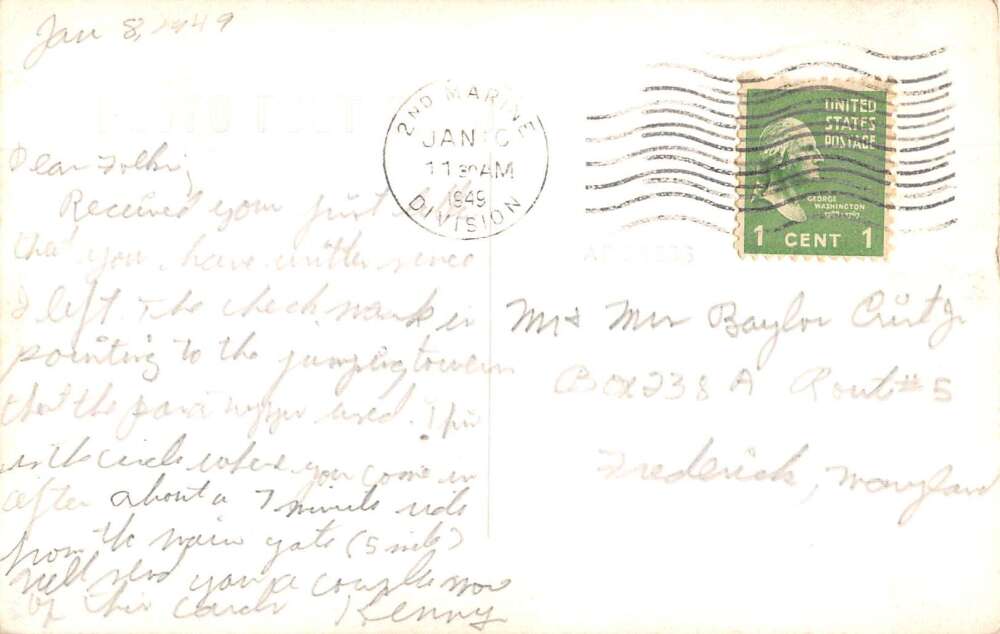 Jan 8, 1949
2ND MARINE DIVISION
JAN 10
11 30 AM
1949
UNITED
STATES
POSTAGE
GEORGE
WASHINGTON
1 CENT 1
Dear Folks,
Received your first letter
that you have written since
I left. The check mark is
pointing to the jumping towers
that the para used. This
is the circle where you come in
after about a 7 minute ride
from the main gate (5 miles)
Will send you a couple more
of this cards Kenny
Mr & Mrs Baylor Crist Jr
Box 238 A Route #5
Frederick, Maryland